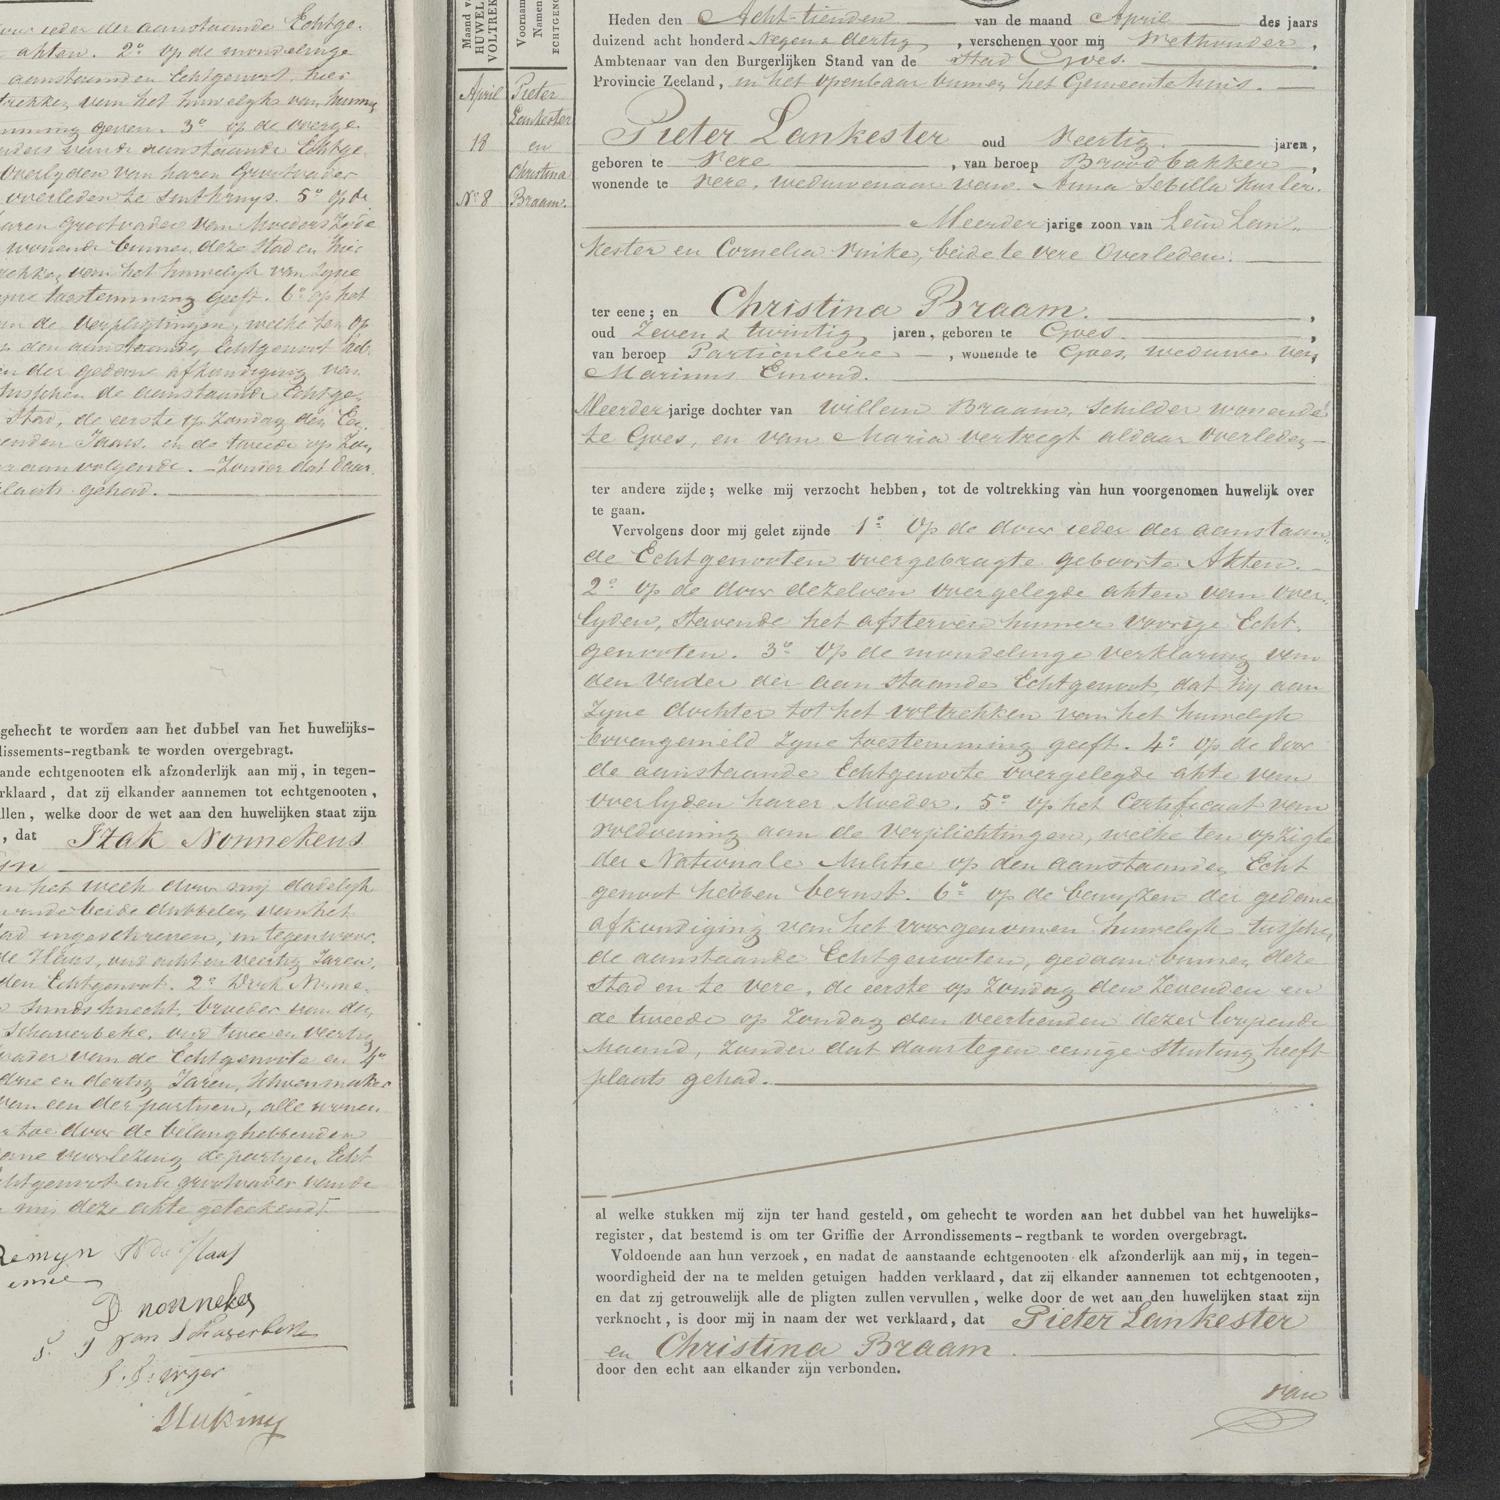 ieder der aanstaande Echtge-
akten. 2o op de mondelinge
aanstaanden Echtgenoot, hier
van het huwelijk van hunne
geven. 3o op de overge
aanstaande Echtge
overlyden van haren Grootvader
overleden te 5o op de
Grootvader van Moeders Zyde
wonende binnen deze stad en hier
van het huwelyk van zyne
toestemming geeft. 6o op het
de verpligtingen, welke ten op
den aanstaanden Echtgenoot
der gedane afkondiging van
tusschen de aanstaande Echtge-
Stad, de eerste op Zondag den
Jaars. en de tweede op Zon-
aanvolgende. Zonder dat daar
plaats gehad.
gehecht te worden aan het dubbel van het huwelijks-
dissements-regtbank te worden overgebragt.
ande echtgenooten elk afzonderlijk aan mij, in tegen-
rklaard, dat zij elkander aannemen tot echtgenooten,
llen, welke door de wet aan den huwelijken staat zijn
, dat Izak Nonnekens
en het welk door mij dadelyk
beide dubbelen van het
ingeschreven, in tegenwoor-
oud acht en veertig Jaren,
den Echtgenoot. 2o Dirk Nonne-
broeder van den
Schaverbeke, oud twee en veertig
vader van de Echtgenoote en 4o
drie en dertig Jaren, Schoenmaker
van een der partyen, alle wonen
toe door de belanghebbenden
voorlezing de partyen Echt
Echtgenoot en de grootvader van de
mij deze akte geteekend.
Remyn
D nonnekes
van Schaverbeke
Maand v
HUWEL
VOLTREK
Voornam
Namen
ECHTGENO
April
18
No 8
Pieter
Lankester
en
Christina
Braam.
Heden den Acht-tienden van de maand April des jaars
duizend acht honderd Negen & dertig, verschenen voor mij Wethouder,
Ambtenaar van den Burgerlijken Stand van de Stad Goes.
Provincie Zeeland, in het openbaar binnen het Gemeente huis.
Pieter Lankester oud Veertig jaren,
geboren te Vere, van beroep Broodbakker,
wonende te Vere, weduwenaar van Anna Sebilla Kusler.
Meerder jarige zoon van Lein Lan-
kester en Cornelia Vinke, beide te vere Overleden.
ter eene; en Christina Braam.
oud Zeven & twintig jaren, geboren te Goes.
van beroep Particuliere, wonende te Goes, weduwe van
Marinus Emond.
Meerder jarige dochter van Willem Braam, Schilder wonende
te Goes, en van Maria vertregt aldaar overleden
ter andere zijde; welke mij verzocht hebben, tot de voltrekking van hun voorgenomen huwelijk over
te gaan.
Vervolgens door mij gelet zijnde 1o Op de door ieder der aanstaan-
de Echtgenooten overgebragte geboorte Akten.
2o op de door dezelven overgelegde akten van over-
lyden, stavende het afsterven hunner vorige Echt-
genooten. 3o Op de mondelinge verklaring van
den vader der aanstaande Echtgenoot, dat hy aan
Zyne dochter tot het voltrekken van het huwelyk
bovengemeld Zyne toestemming geeft. 4o op de door
de aanstaande Echtgenoote overgelegde akte van
overlyden harer Moeder. 5o op het Certificaat van
voldoening aan de verplichtingen, welke ten opzigte
der Nationale Militie op den aanstaanden Echt
genoot hebben berust. 6o op de bewyzen der gedane
afkondiging van het voorgenomen huwelyk tusschen
de aanstaande Echtgenooten, gedaan binnen deze
Stad en te vere, de eerste op Zondag den Zevenden en
de tweede op Zondag den veertienden dezer loopende
Maand, Zonder dat daartegen eenige Stuiting heeft
plaats gehad.
al welke stukken mij zijn ter hand gesteld, om gehecht te worden aan het dubbel van het huwelijks-
register, dat bestemd is om ter Griffie der Arrondissements-regtbank te worden overgebragt.
Voldoende aan hun verzoek, en nadat de aanstaande echtgenooten elk afzonderlijk aan mij, in tegen-
woordigheid der na te melden getuigen hadden verklaard, dat zij elkander aannemen tot echtgenooten,
en dat zij getrouwelijk alle de pligten zullen vervullen, welke door de wet aan den huwelijken staat zijn
verknocht, is door mij in naam der wet verklaard, dat Pieter Lankester
en Christina Braam
door den echt aan elkander zijn verbonden.
van